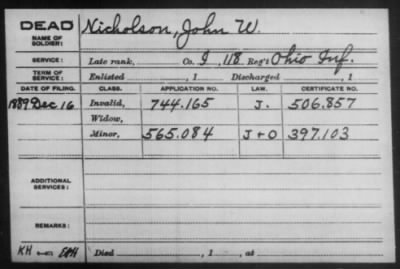 DEAD
NAME OF SOLDIER:
Nicholson, John W.
SERVICE:
Late rank, Co. I, 118 Reg't Ohio Inf.
TERM OF SERVICE:
Enlisted , 1 Discharged , 1
DATE OF FILING. CLASS. APPLICATION NO. LAW. CERTIFICATE NO.
1889 Dec 16 Invalid, 744.165 J. 506.857
Widow,
Minor, 565.084 J+O 397.103
ADDITIONAL SERVICES:
REMARKS:
KH
Died , 1 , at